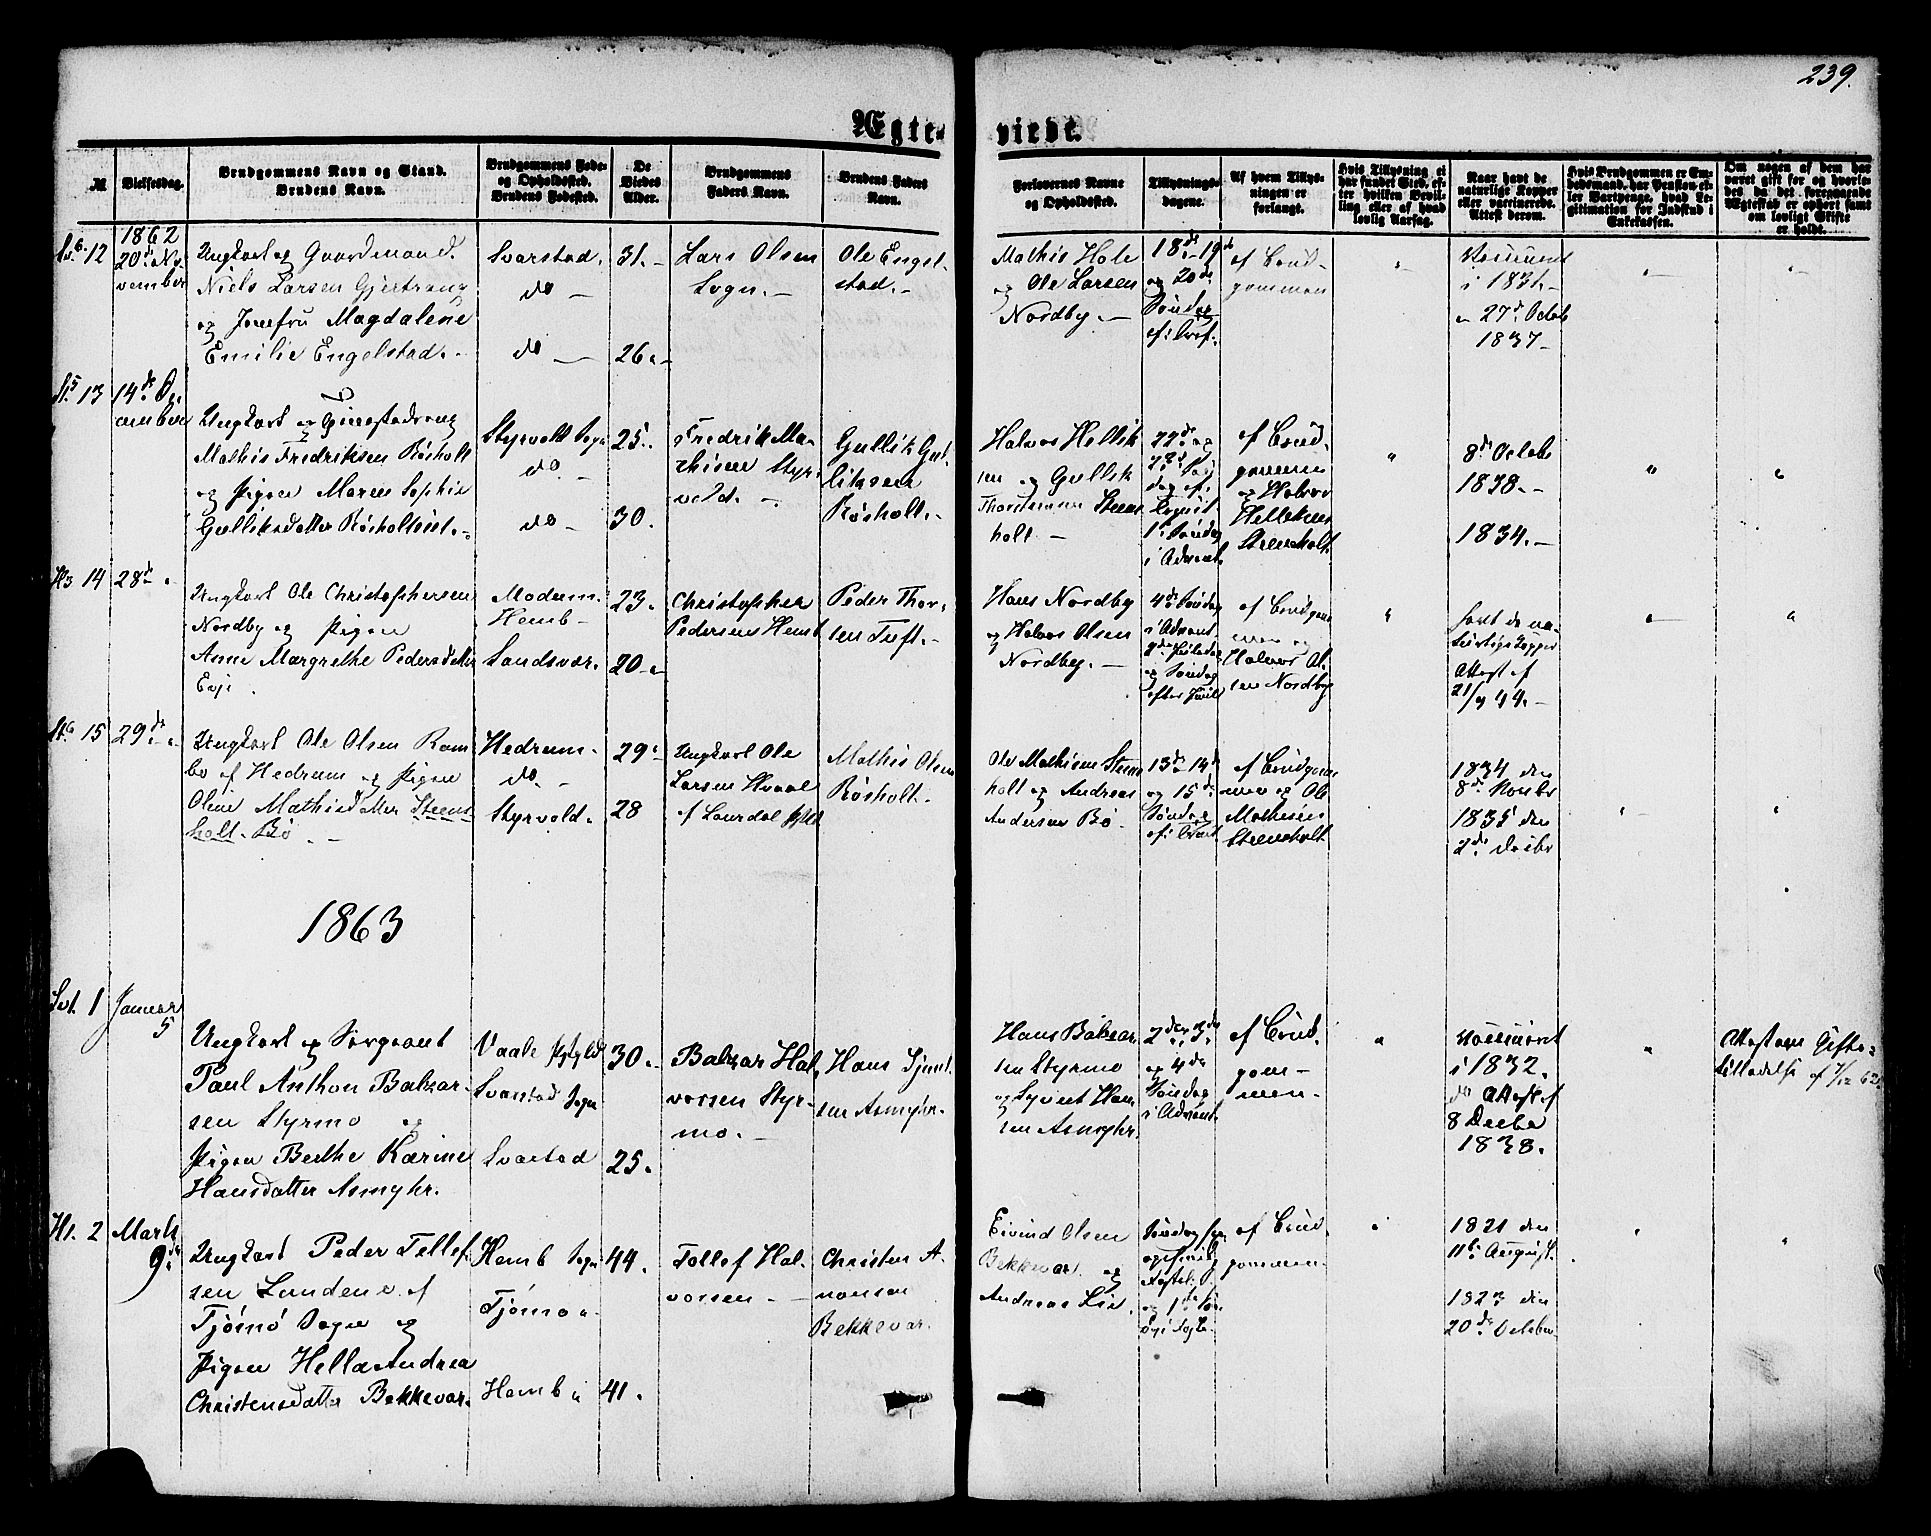 239.
Ægte- viede.
№
Vielsesdag.
Brudgommens Navn og Stand.
Brudens Navn.
Brudgommens Føde-
og Opholdssted.
Brudens Fødested.
De
Viedes
Alder.
Brudgommens
Faders Navn.
Brudens Faders
Navn.
Forlovernes Navne
og Opholdssted.
Tillysnings-
dagene.
Af hvem Tillys-
ningen er
forlangt.
Hvis Tillysning ei
har fundet Sted, ef-
ter hvilken Bevil-
ling eller af hvad
lovlig Aarsag.
Naar havt de
naturlige Kopper
eller vaccinerede.
Attest derom.
Hvis Brudgommen er Em-
bedsmand, har Pension el-
ler Vartpenge, hvad Le-
gitimation for Indskud i
Enkekassen.
Om nogen af dem har
været gift før og hvorle-
des da det foregaaende
Ægteskab er ophørt samt
om lovligt Skifte
er holdt.
12
1862
20de No-
vember
Ungkarl og Gaardmand
Niels Larsen Gjertrang
og Jomfru Magdalene
Emilie Engelstad.
Svarstad.
do
do
31.
26.
Lars Olsen
Sogn.
Ole Engel-
stad.
Mathis Hole
og Ole Larsen
Nordby.
18de 19de
og 20de
Søndag
ef: Tref.
af Brud-
gommen
Vaccineret
i 1831.
27de Octob
1837
13
14de De-
cember
Ungkarl og
Mathis Fredriksen Røsholt
og Pigen Maren Sophie
Gulliksdatter Røsholt
Styrvolds Sogn
do.
do
25.
30.
Fredrik Ma-
thisen Styr-
vold.
Gullik Gul-
liksen
Røsholt.
Halvor Hellik
sen og Gullik
Thordsen Steens
holt
22de og
23de Søn
dag ef:
Trinit
1ste Søndag
i Advent.
af Brud-
gommen
og Halvor
Helleksen
Steensholt.
8de Octobr
1838.
1834.
14
28de
Ungkarl Ole Christophersen
Nordby og Pigen
Anne Margrethe Pedersdatter
Evje.
Modum.
Hemb
Sandsvær.
23.
20
Christopher
Pedersen Hemb
Peder Thor-
sen Tuft.
Hans Nordby
og Halvor Olsen
Nordby.
4de Søndag
i Advent
2den Juledag
og Søndag
efter Juul
af Brudgom
men og
Halvor Ol-
sen Nordby
havt de na-
turlige Kopper
Attest af
21/9 44.
15
29de
Ungkarl Ole Olsen Ram
bo af Hedrum og Pigen
Oline Mathisdatter Steens
holt. Bø
Hedrum
do.
Styrvold.
29
28
Ungkarl Ole
Larsen Hvaal
af Laurdal Pgld
Mathis Olsen
Røsholt.
Ole Mathisen Steens
holt og Andreas
Andersen Bø
13de 14de
og 15de
Søndag
ef: Trinit
af Brudgom
men og Ole
Mathisen
Steensholt
1834 den
8de Novbr
1835 den
2de Decbr
1863
Svt. 1
Januar
5
Ungkarl og Sergeant
Paul Anthon Balzar-
sen Styrmo og
Pigen Berthe Karine
Hansdatter Asmyhr.
Vaale Pgtgld
Svarstad Sogn
Svarstad
30.
25.
Balzar Hal-
vorsen Styr-
mo.
Hans
sen Asmyhr.
Hans Balzar
sen Styrmo
og Syvert Han
sen Asmyhr.
2den 3de
og 4de
Søndag
i Advent.
af Brud
gom-
men.
Vaccineret
i 1832.
do Attest af
8 Decbr
1838.
Attest om Gifte-
tilladelse af 7/12 62.
2
Marts
9de
Ungkarl Peder Tellef
sen Sandene af
Tjømø Sogn og
Pigen Hella Andrea
Christensdatter Bekkevar.
Hemb Sogn
Tjømø
Hemb
44.
41.
Tollef Hal-
vorsen
Christen A-
monsen
Bekkevar.
Eivind Olsen
Bekkevar og
Andreas Lie.
Søndag
og 1ste Søn
af Brud
gommen
1821 den
11te August.
1823 den
20de October